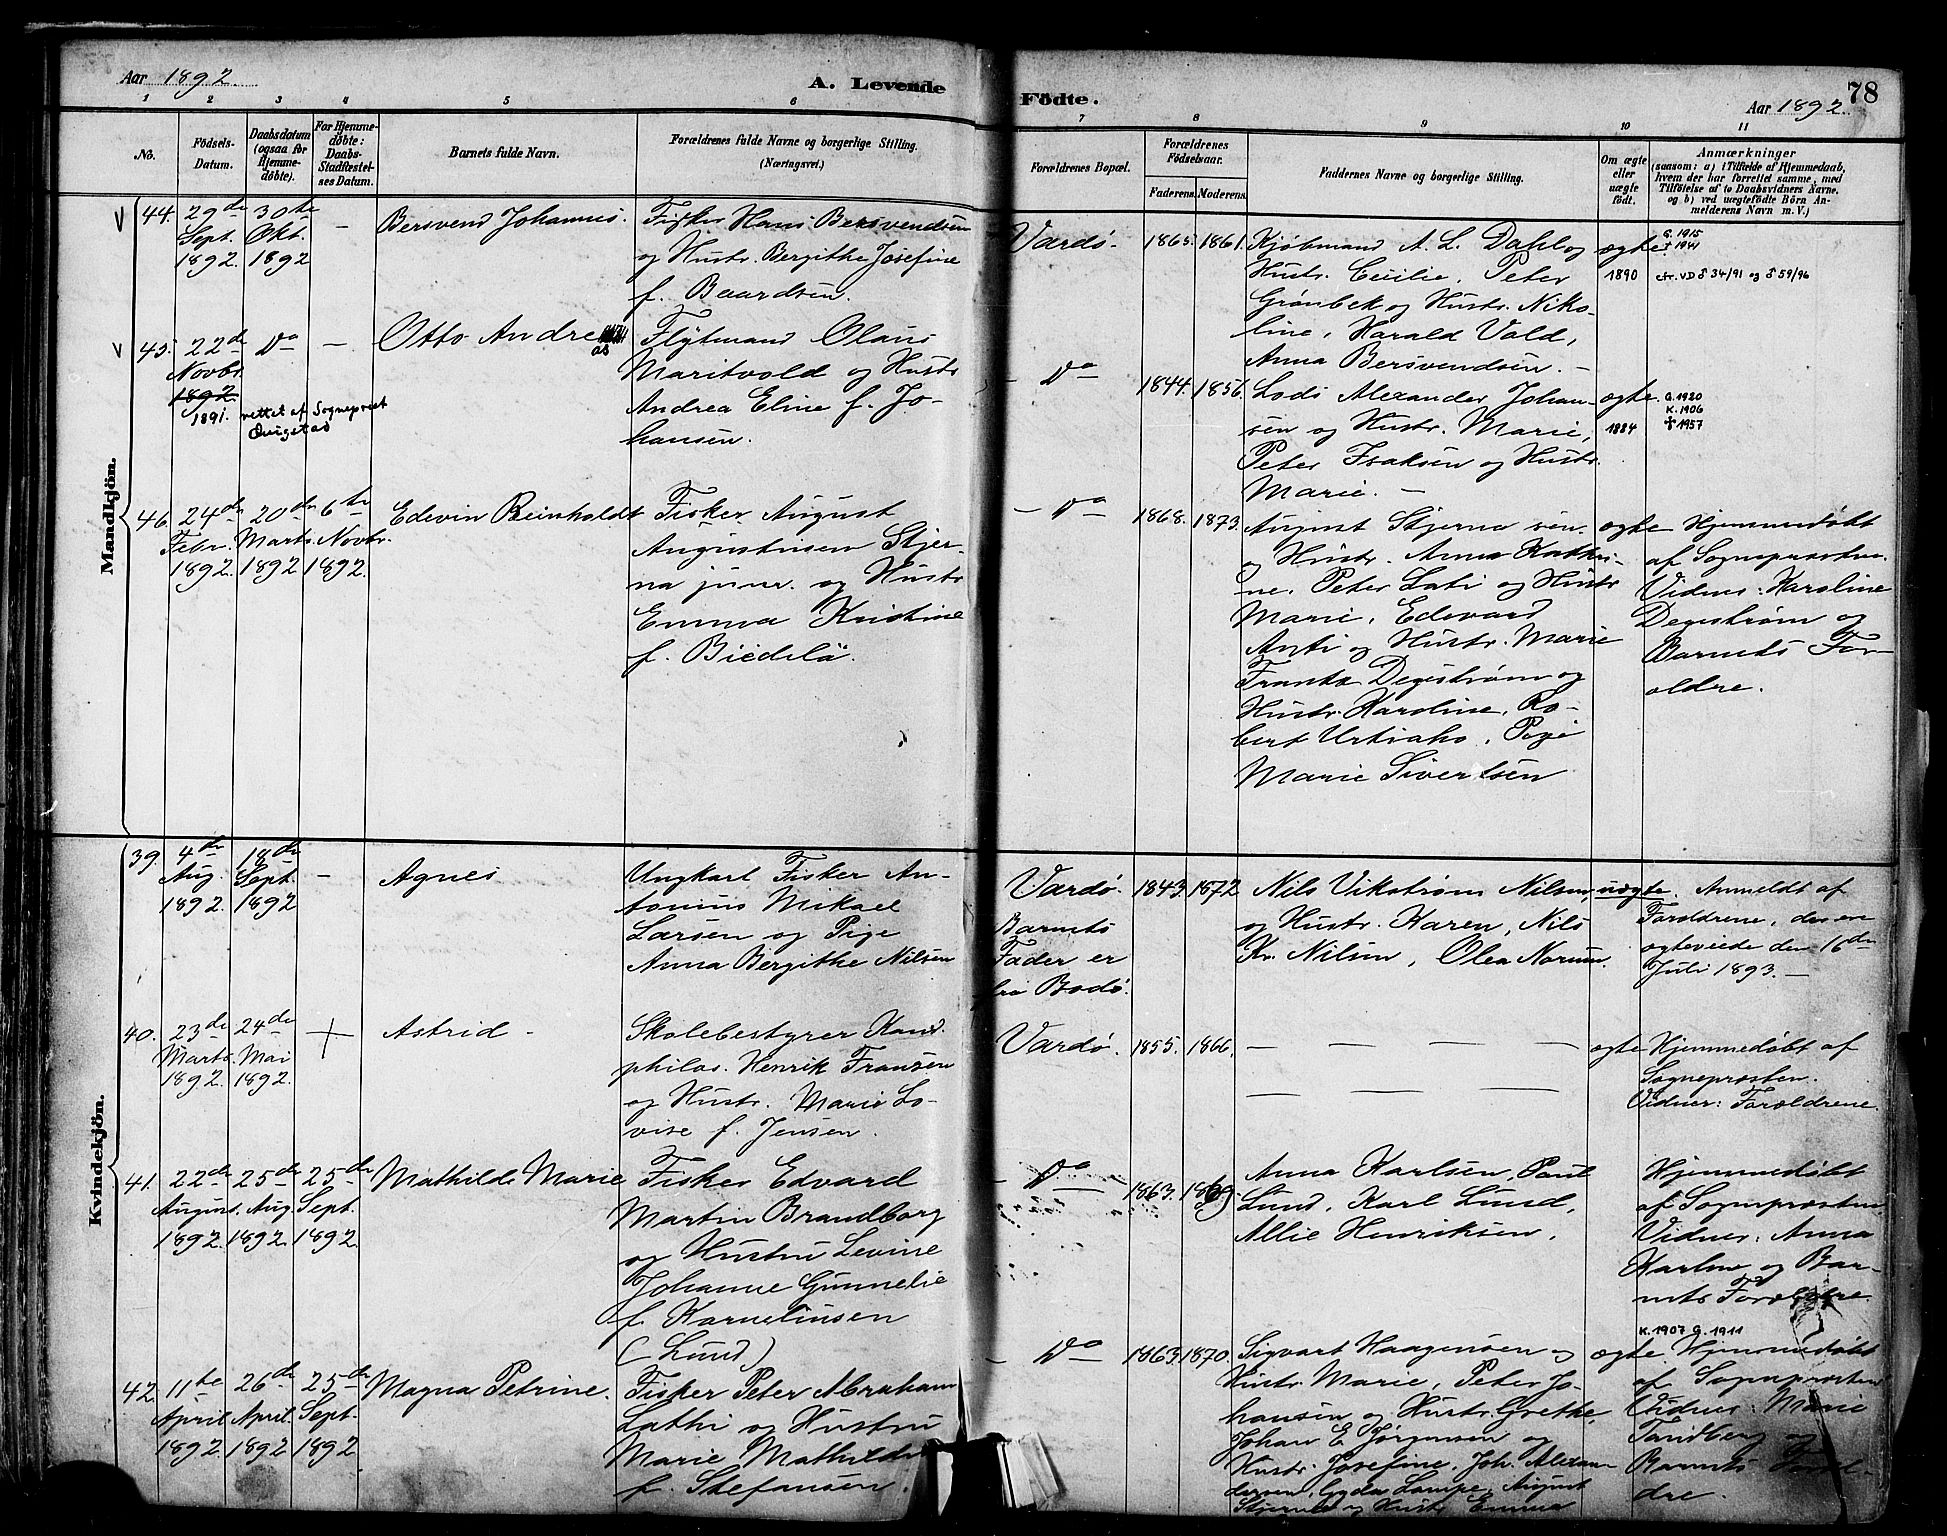 Aar 1892.
A. Levende
Födte.
Aar 1892.
78
1 2 3 4 5 6 7 8 9 10 11
No.
Födsels-
Datum.
Daabsdatum
(ogsaa for
Hjemme-
døbte).
For Hjemme-
døbte:
Daabs-
Stadfæstel-
ses Datum.
Barnets fulde Navn.
Forældrenes fulde Navne og borgerlige Stilling.
(Næringsvei.)
Forældrenes Bopæl.
Forældrenes
Fødselsaar.
Faderens. Moderens.
Faddernes Navne og borgerlige Stilling.
Om ægte
eller
uægte
født.
Anmærkninger
(saasom: a) i Tilfælde af Hjemmedaab,
hvem der har forrettet samme, med
Tilföielse af to Daabsvidners Navne.
og b) ved uægtefödte Börn An-
melderens Navn m. V.)
Mandkjön.
44.
29de
Sept.
1892.
30te
Okt.
1892
–
Bersvend Johannes.
Fisker Hans Bersvendsen
og Hustr. Bergithe Josefine
f. Baardsen.
Vardö.
1865. 1861.
Kjøbmand A. L. Dahl og
Hustr. Cecilie, Peter
Grønbek og Hustr. Niko-
line, Harald Vold,
Anna Bersvendsen. –
ægte.
1890
G. 1915
† 1941
cfr. VD ♂ 34/91 og ♂ 59/96
45.
22de
Novbr.
1892.
1891. rettet af Sogneprest
Qvigstad
Do
–
Otto Andreas
Flytmand Olaus
Maritvold og Hustr
Andrea Eline f. Jo-
hansen.
– Do –
1844. 1856.
Lods Alexander Johan-
sen og Hustr. Marie,
Peter Isaksen og Hustr.
Marie. –
ægte.
1884
G. 1920
K. 1906
1957
46.
24de
Febr.
1892.
20de
Marts
1892
6te
Novbr.
1892.
Edevin Reinholdt
Fisker August
Augustinsen Stjer-
na junr. og Hustr
Emma Kristine
f. Biedelä.
– Do
1868. 1873.
August Stjerna sen.
og Hustr. Anna Kathri-
ne, Peter Lati og Hustr
Marie, Edevard
Anti og Hustr. Marie
Frants Degestrøm og
Hustr. Karoline, Ro-
bert Urtiaho, Pige
Marie Sivertsen
ægte
Hjemmedøbt
af Sognepræsten.
Vidner: Karoline
Degestrøm og
Barnets For-
ældre.
Kvindekjön.
39.
4de
Aug.
1892.
18de
Sept.
1892
–
Agnes
Ungkarl Fisker An-
tonius Mikael
Larsen og Pige
Anna Bergithe Nilsen
Vardö.
Barnets
Fader er
fra Bodö.
1843. 1872
Nils Vikstrøm Nilsen,
og Hustr. Karen, Nils
Kr. Nilsen, Olea Norum.
uægte.
Anmeldt af
Forældrene, der ere
ægteviede den 16de
Juli 1893. –
40.
23de
Marts
1892.
24de
Mai
1892.
+
Astrid –
Skolebestyrer Kand.
philos. Henrik Fransen
og Hustr. Marie Lo-
vise f. Jensen.
Vardö.
1855. 1866.
– – – –
– – –
ægte
Hjemmedøbt af
Sognepræsten.
Vidner: Forældrene.
41.
22de
August.
1892.
25de
Aug.
1892.
25de
Sept.
1892.
Mathilde Marie
Fisker Edvard
Martin Brandborg
og Hustru Levine
Johanne Gunnelie
f. Karneliusen
(Lund)
– Do –
1863. 1869.
Anna Karlsen, Paul
Lund, Karl Lund,
Allie Henriksen.
Hjemmedøbt
af Sognepræsten
Vidner: Anna
Karlsen og Bar-
nets Forældre.
42.
11te
April
1892
26de
April.
1892
25de
Sept.
1892
Magna Petrine.
Fisker Peter Abraham
Lathi og Hustru
Marie Mathilde
f. Stefansen.
– Do –
1863. 1870.
Sigvart Haagensen og
Hustr. Marie, Peter Jo-
hansen og Hustr. Grethe
Johan E Jørgensen og
Hustr. Josefine, Joh. Alexan-
dersen, Gyda Lampe, August
Stjerna og Hustr Emma
ægte.
K. 1907 G. 1911
Hjemmedøbt
af Sognepræsten
Vidner: Marie
Tandberg og
Barnets Foræl-
dre.